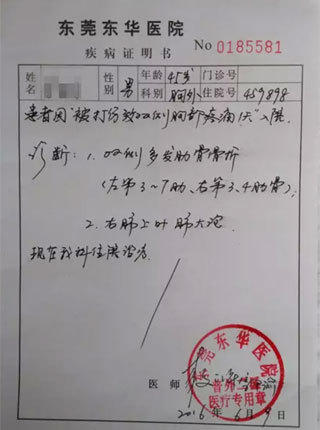 东莞东华医院
疾病证明书
No 0185581
姓名 性别 男 年龄 45岁 门诊号
科别 胸外 住院号 459898
患者因"被打伤致双侧胸部疼痛1天"入院.
诊断: 1. 双侧多发肋骨骨折
(左第3~7肋、右第3、4肋骨);
2. 右肺上叶肺大泡
现在我科住院治疗.
东莞东华医院
医师
医疗专用章
2016年6月9日